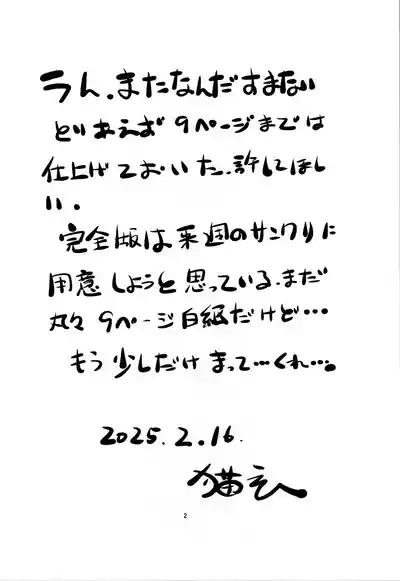 うん.またなんだすまない
とりあえず 9ページまでは
仕上げておいた.許してほし
い.
完全版は来週のサンクリに
用意しようと思っている.まだ
丸々 9ページ白紙だけど…
もう少しだけまって…くれ…。
2025.2.16.
猫玄
2